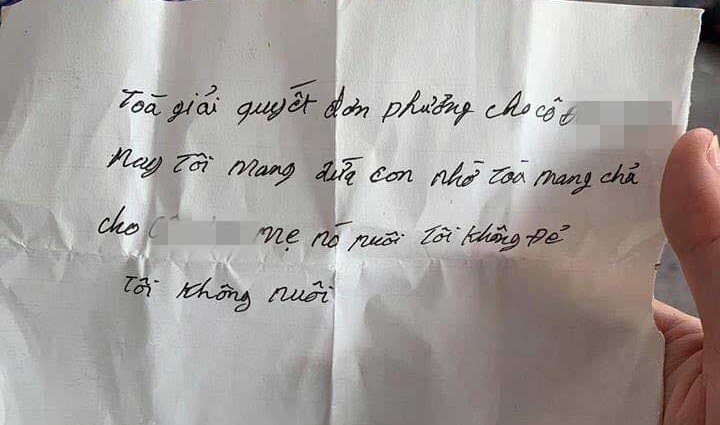 Toà giải quyết đơn phưởng cho cô Đ
Nay Tôi mang đứa con nhờ Toà mang chả
cho C mẹ nó nuôi Tôi không Đẻ
Tôi không nuôi